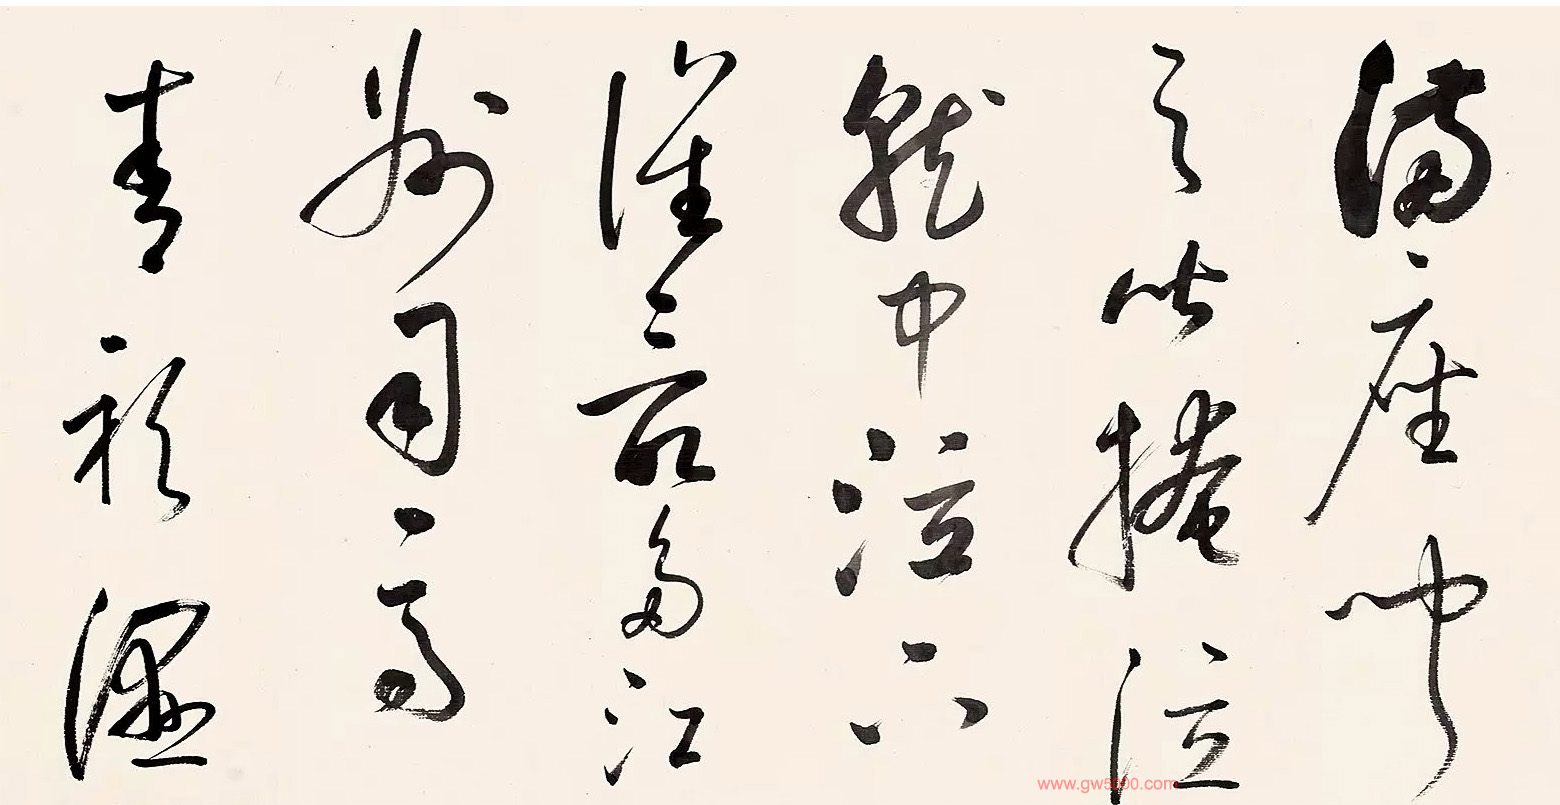 滿座聞
之皆掩泣
就中泣下
誰最多江
州司馬
青衫濕
www.gw5000.com